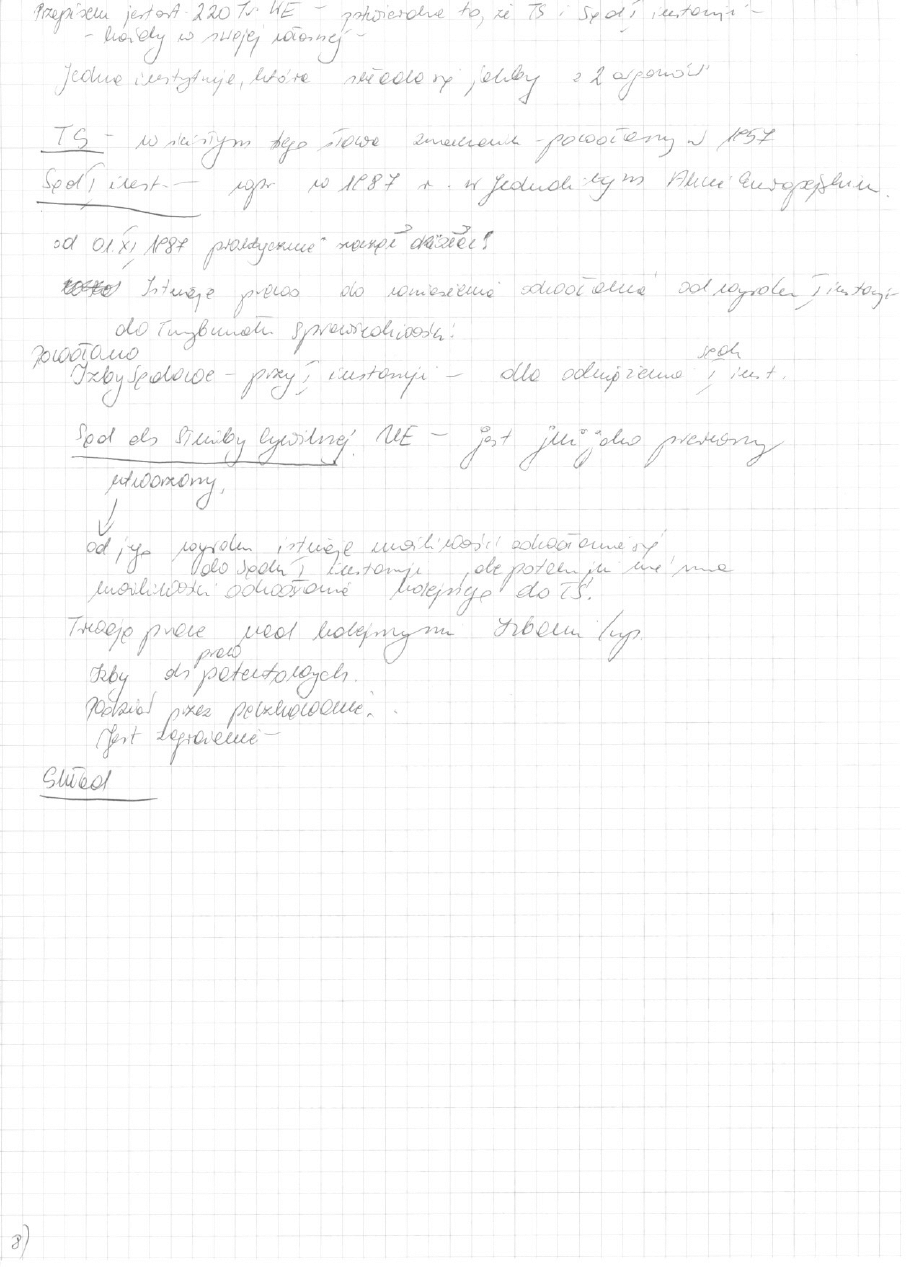 Przepisem jest art. 220 TS UE – potwierdza to, że TS i Sąd I instancji –
– każdy w swojej własnej –
Jedna instytucja, która składa się jakby z 2 organów
TS – w ścisłym tego słowa znaczeniu – powołany w 1957
Sąd I inst. – wpr. w 1987 r. w Jednolitym Akcie Europejskim.
od 01.XI, 1987 praktycznie zaczął działać!
Istnieje prawo do wniesienia odwołania od wyroku I instancji
do Trybunału Sprawiedliwości!
powołano
Izby Sądowe – przy I instancji – dla odciążenia sądu I inst.
Sąd ds Służby Cywilnej UE – jest już jako pierwszy
utworzony,
od jego wyroku istnieje możliwość odwołania się
do Sądu I instancji, ale potem już nie ma
możliwości odwołania kolejnego do TS.
Trwają prace nad kolejnymi Izbami /np.
Izby ds praw patentowych.
Podział przez
Jest zagrożenie –
Skład
8)